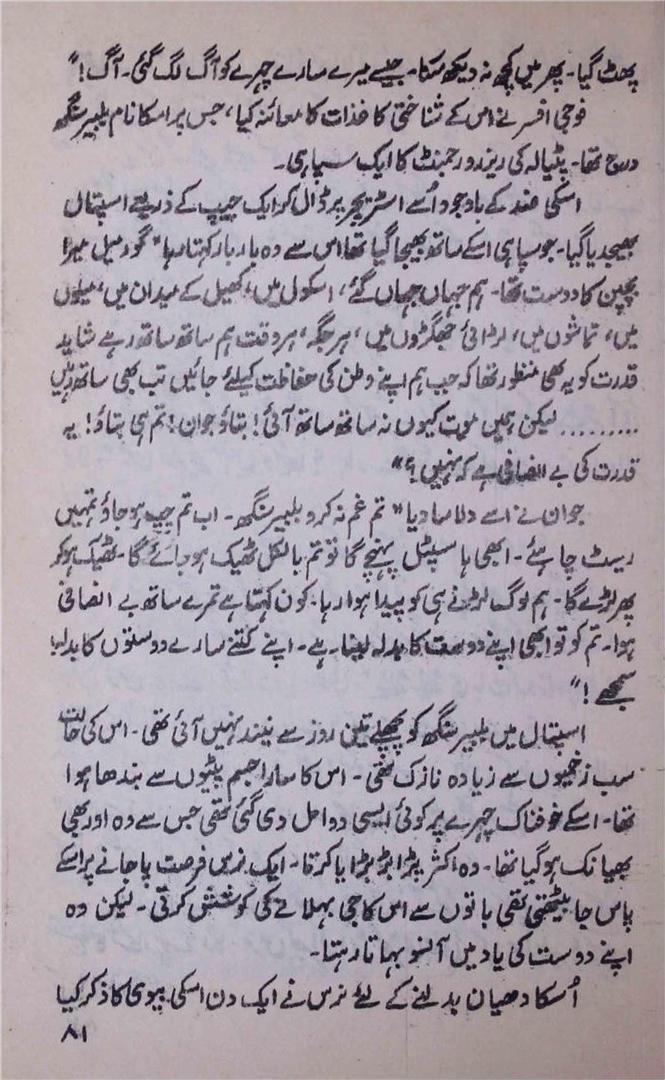 پھٹ گیا۔ پھر میں کچھ نہ دیکھ سکا۔ جیسے میرے سارے چہرے کو آگ لگ گئی۔ آگ!"
فوجی افسر نے اس کے شناختی کاغذات کا معائنہ کیا، جس پر اسکا نام بلبیر سنگھ
درج تھا۔ پٹیالہ کی ریزرو رجمنٹ کا ایک سپاہی۔
اسکی ضد کے باوجود اُسے اسٹریچر پر ڈال کر ایک جیپ کے ذریعے اسپتال
بھیجدیا گیا۔ جو سپاہی اسکے ساتھ بھیجا گیا تھا اس سے وہ بار بار کہتا رہا" گورمیل میرا
بچپن کا دوست تھا۔ ہم جہاں جہاں گئے، اسکول میں، کھیل کے میدان میں، میلوں
میں، تماشوں میں، لڑائی جھگڑوں میں، ہر جگہ، ہر وقت ہم ساتھ ساتھ رہے شاید
قدرت کو یہ بھی منظور تھا کہ جب ہم اپنے وطن کی حفاظت کیلئے جائیں تب بھی ساتھ رہیں
......... لیکن ہمیں موت کیوں نہ ساتھ ساتھ آئی! بتاؤ جوان! تم ہی بتاؤ! یہ
قدرت کی بے انصافی ہے کہ نہیں؟"
جوان نے اسے دلاسا دیا" تم غم نہ کرو بلبیر سنگھ۔ اب تم چپ ہو جاؤ تمہیں
ریسٹ چاہئے۔ ابھی ہاسپٹل پہنچے گا تو تم بالکل ٹھیک ہو جائے گا۔ ٹھیک ہو کر
پھر لڑے گا۔ ہم لوگ لڑنے ہی کو پیدا ہوا رہا۔ کون کہتا ہے تمرے ساتھ بے انصافی
ہوا۔ تم کو تو ابھی اپنے دوست کا بدلہ لینا ہے۔ اپنے کتنے سارے دوستوں کا بدلہ!
سمجھے!"
اسپتال میں بلبیر سنگھ کو پچھلے تین روز سے نیند نہیں آئی تھی۔ اس کی حالت
سب زخمیوں سے زیادہ نازک تھی۔ اس کا سارا جسم پٹیوں سے بندھا ہوا
تھا۔ اسکے خوفناک چہرے پر کوئی ایسی دوا مل دی گئی تھی جس سے وہ اور بھی
بھیانک ہو گیا تھا۔ وہ اکثر پڑا بڑبڑایا کرتا۔ ایک نرس فرصت پا جانے پر اسکے
پاس جا بیٹھتی تھی باتوں سے اس کا جی بہلانے کی کوشش کرتی۔ لیکن وہ
اپنے دوست کی یاد میں آنسو بہاتا رہتا۔
اُسکا دھیان بدلنے کے لئے نرس نے ایک دن اسکی بیوی کا ذکر کیا
۸۱